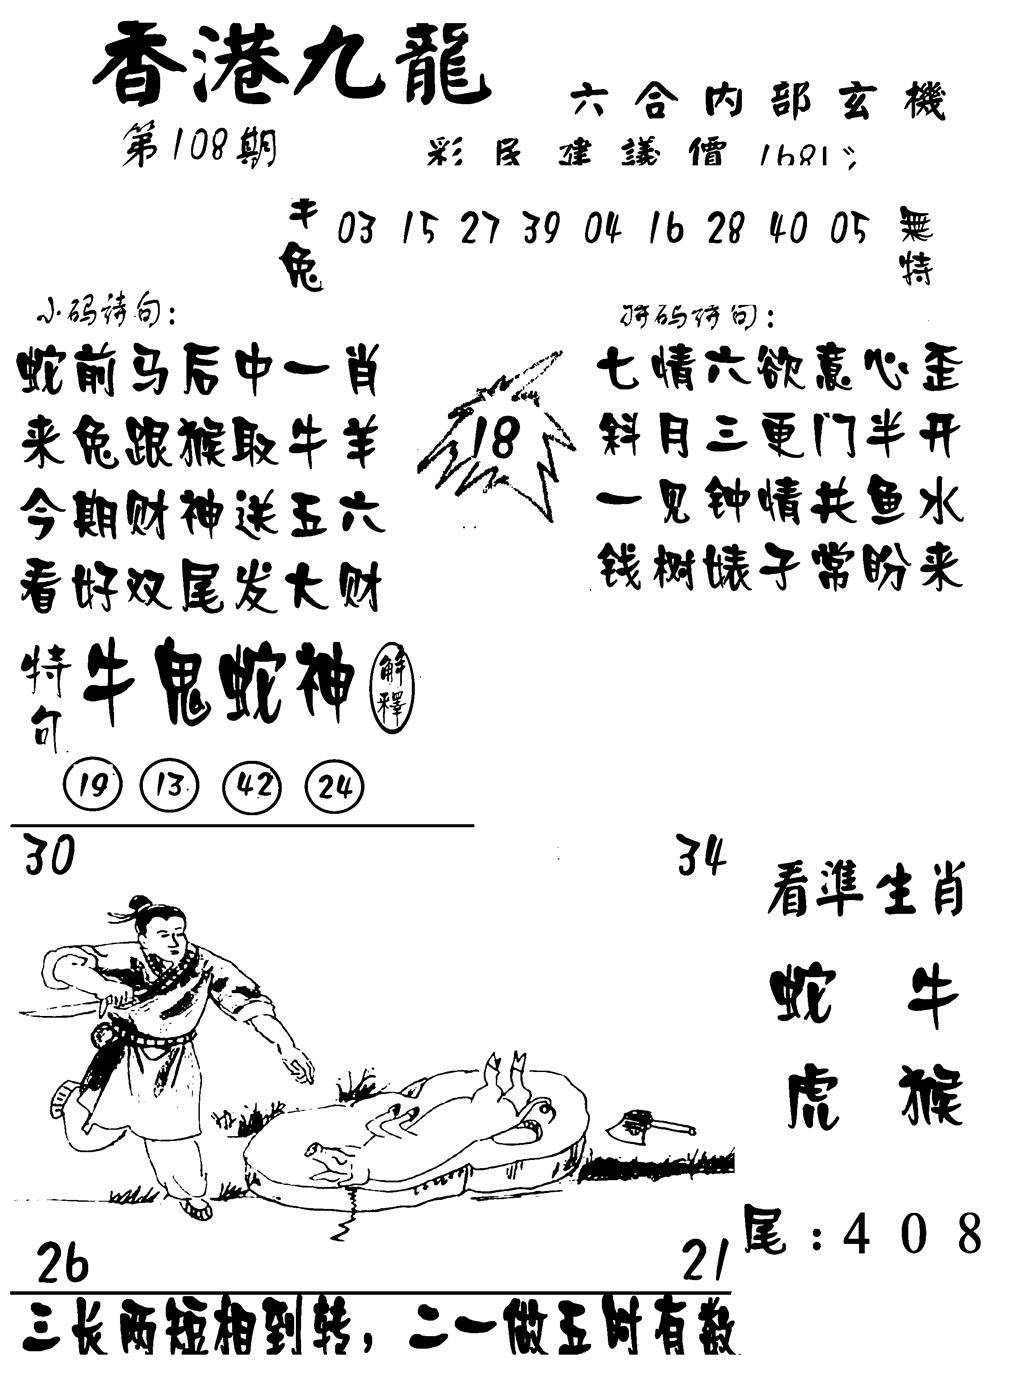 香港九龍
六合内部玄機
第108期
彩民建議價 1681
牛兔 03 15 27 39 04 16 28 40 05 無特
小码诗句：
特码诗句：
蛇前马后中一肖
七情六欲意心歪
来兔跟猴取牛羊
斜月三更门半开
18
今期财神送五六
一见钟情共鱼水
看好双尾发大财
钱树婊子常盼来
特句 牛鬼蛇神 解釋
19 13 42 24
30 34
看準生肖
蛇 牛
虎 猴
尾：4 0 8
26 21
三长两短相到转，二一做五时有数